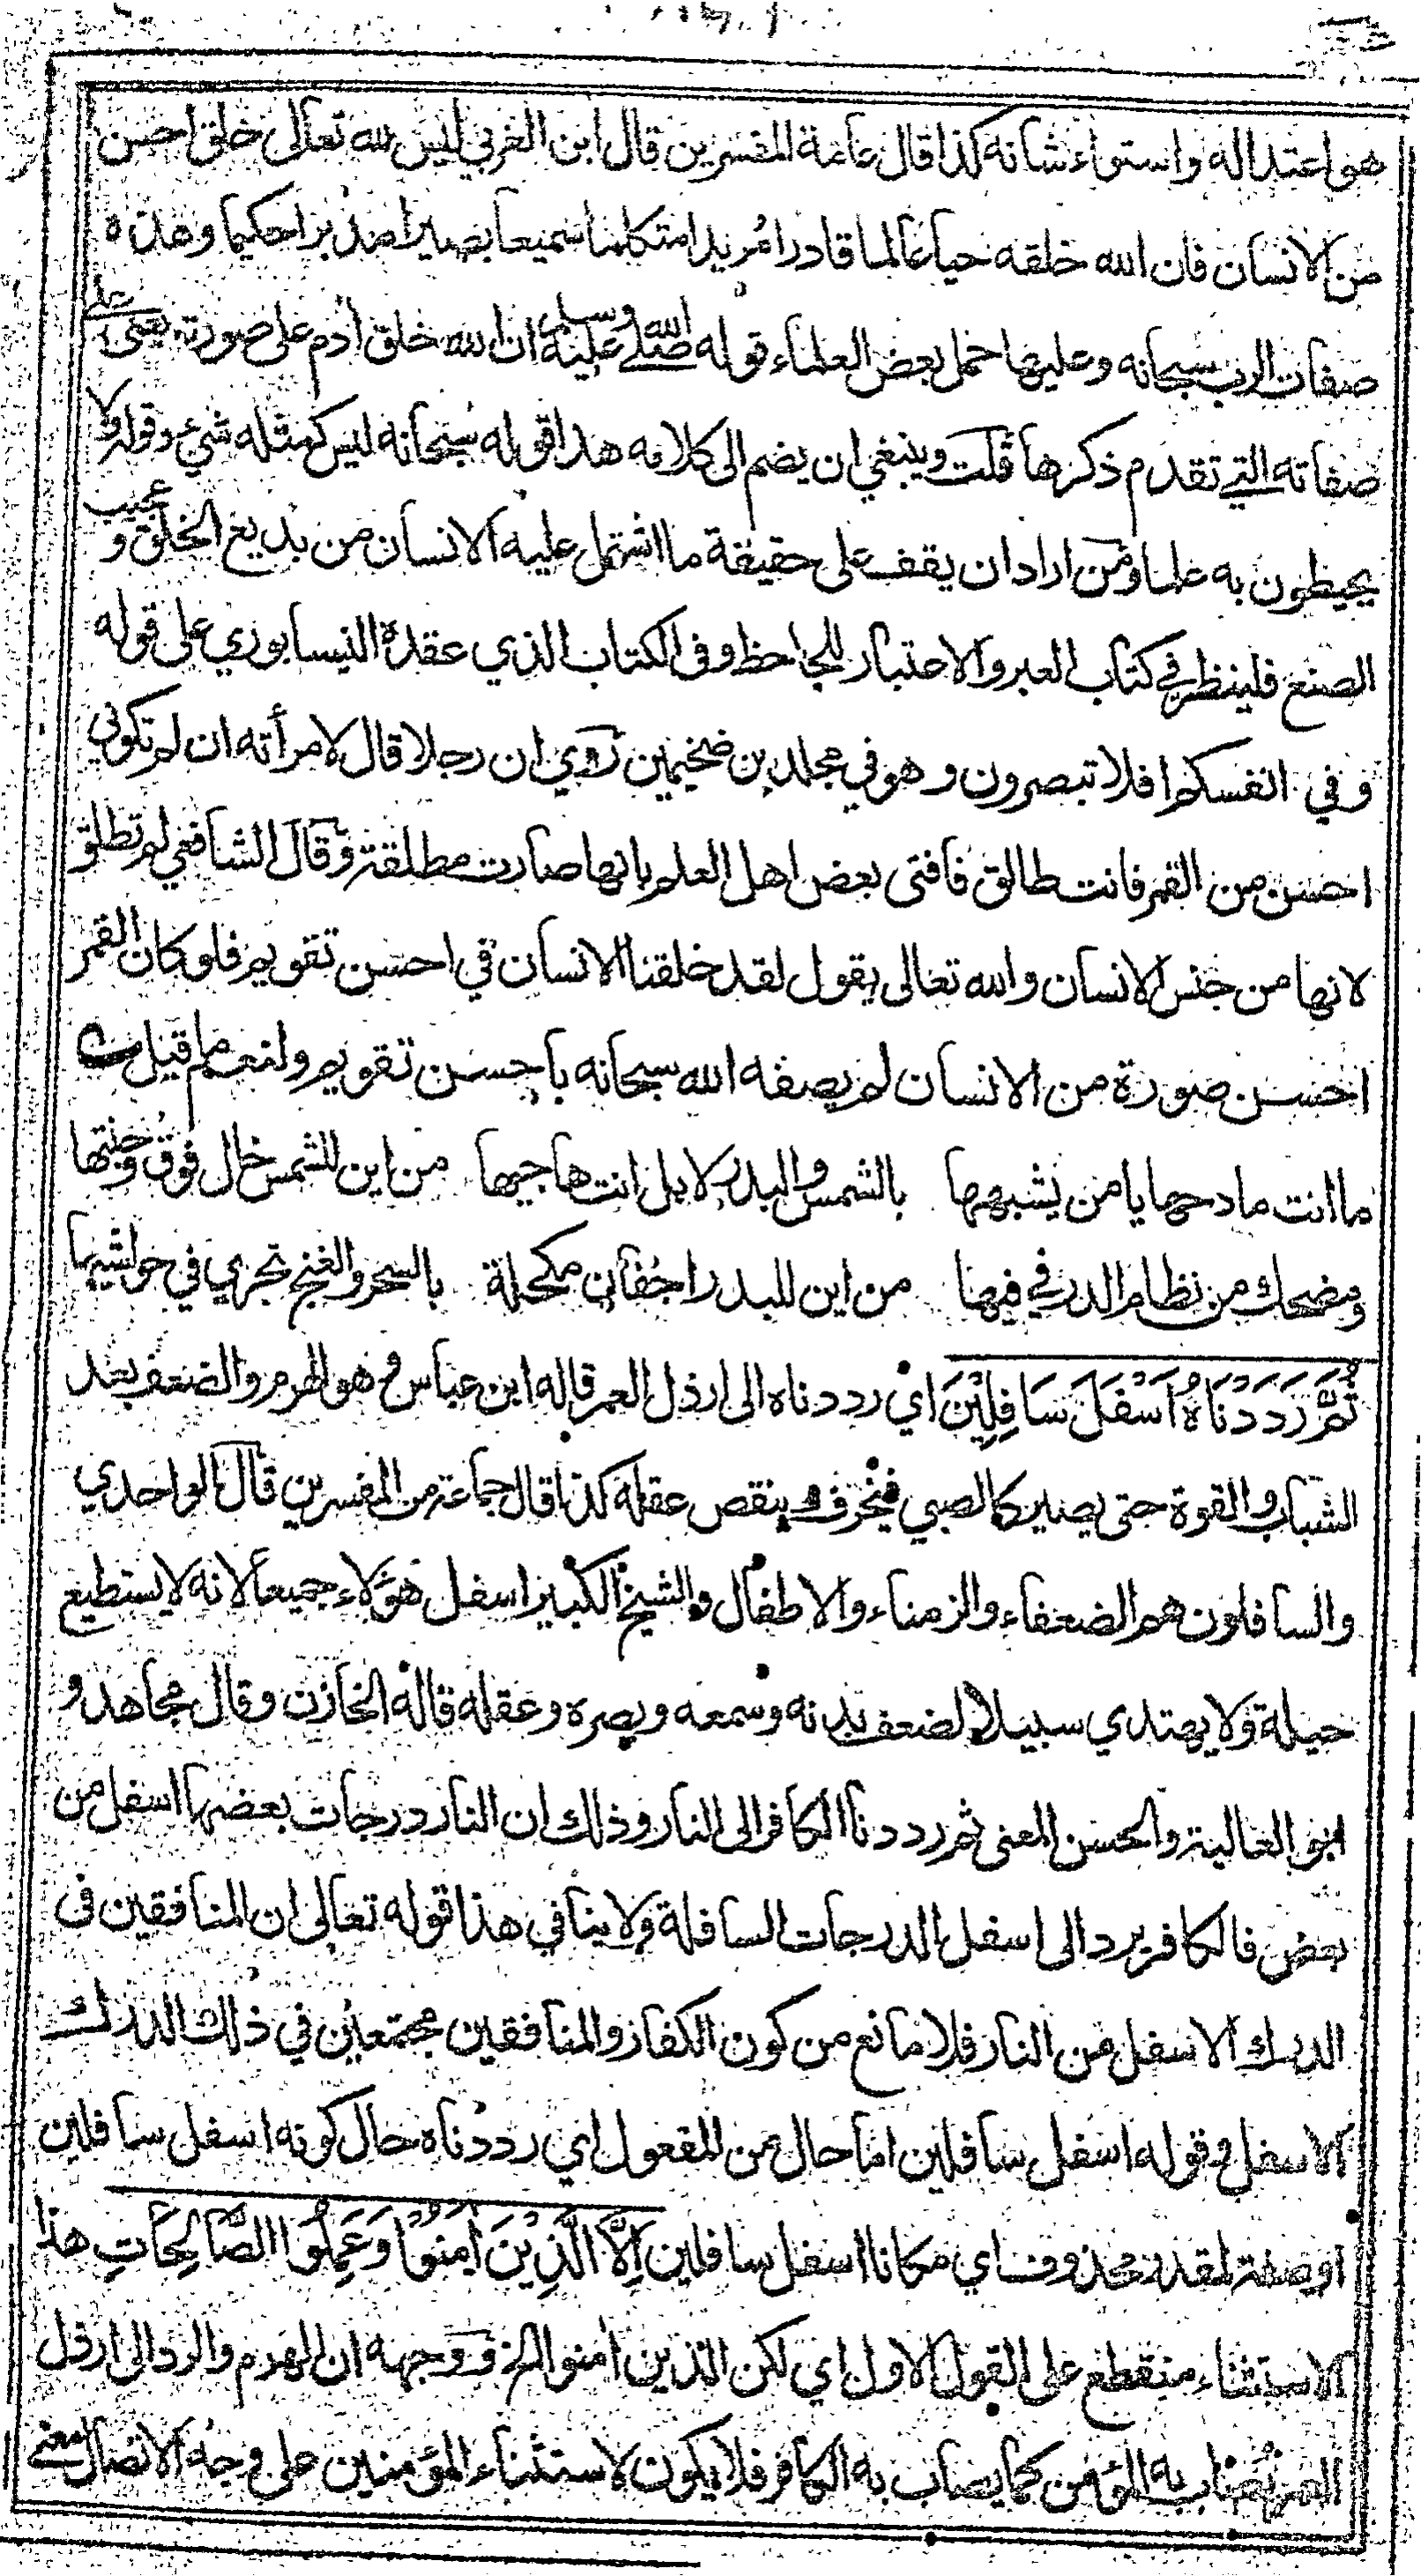 هو اعتداله واستواء شانه كذا قال عامة المفسرين قال ابن العربي ليس لله تعالى خلق احسن
من الانسان فان الله خلقه حيا عالما قادرا مريدا متكلما سميعا بصيرا مدبرا حكيما وهذه
صفات الرب سبحانه وعليها حمل بعض العلماء قوله صلى الله عليه وسلم ان الله خلق آدم على صورته يعني على
صفاته التي تقدم ذكرها قلت وينبغي ان يضم الى كلامه هذا قوله سبحانه ليس كمثله شيء وقوله ولا
يحيطون به علما ومن اراد ان يقف على حقيقة ما اشتمل عليه الانسان من بديع الخلق وعجيب
الصنع فلينظر في كتاب العبر والاعتبار للجاحظ وفي الكتاب الذي عقده النيسابوري على قوله
وفي انفسكم افلا تبصرون وهو في مجلدين ضخيمين روي ان رجلا قال لامرأته ان لم تكوني
احسن من القمر فانت طالق فافتى بعض اهل العلم بانها صارت مطلقة وقال الشافعي لم تطلق
لانها من جنس الانسان والله تعالى يقول لقد خلقنا الانسان في احسن تقويم فلو كان القمر
احسن صورة من الانسان لم يصفه الله سبحانه باحسن تقويم ولنعم ما قيل
ما انت مادحها يا من يشبهها بالشمس والبدر لا بل انت هاجيها من اين للشمس خال فوق وجنتها
ومضحك من نظام الدر في فيها من اين للبدر اجفان مكحلة بالسحر والغنج تجري في حواشيها
ثُمَّ رَدَدْنَاهُ اَسْفَلَ سَافِلِيْنَ اي رددناه الى ارذل العمر قاله ابن عباس وهو الهرم والضعف بعد
الشباب والقوة حتى يصير كالصبي فيخرف وينقص عقله كذا قال جماعة من المفسرين قال الواحدي
والسافلون هم الضعفاء والزمناء والاطفال والشيخ الكبير اسفل هؤلاء جميعا لانه لا يستطيع
حيلة ولا يهتدي سبيلا لضعف بدنه وسمعه وبصره وعقله قاله الخازن وقال مجاهد و
ابو العالية والحسن المعنى ثم رددنا الكافر الى النار وذلك ان النار درجات بعضها اسفل من
بعض فالكافر يرد الى اسفل الدرجات السافلة ولا ينافي هذا قوله تعالى ان المنافقين فى
الدرك الاسفل من النار فلا مانع من كون الكفار والمنافقين مجتمعين في ذلك الدرك
الاسفل وقوله اسفل سافلين اما حال من المفعول اي رددناه حال كونه اسفل سافلين
او صفة لمقدر محذوف اي مكانا اسفل سافلين اِلَّا الَّذِيْنَ اٰمَنُوْا وَعَمِلُوا الصَّالِحَاتِ هذا
الاستثناء منقطع على القول الاول اي لكن الذين آمنوا الخ ووجهه ان الهرم والرد الى ارذل
العمر يصاب به المؤمن كما يصاب به الكافر فلا يكون لاستثناء المؤمنين على وجه الاتصال معنى